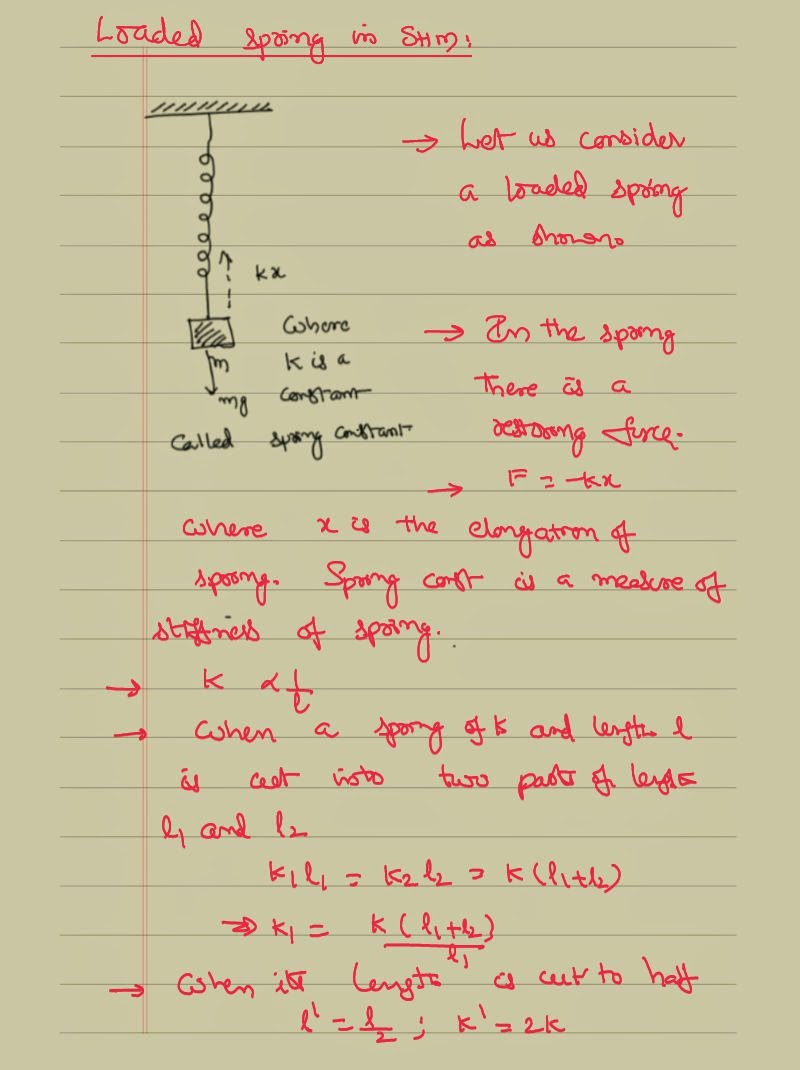 Loaded spring in SHM:
→ Let us consider
a loaded spring
as shown.
kx
m
mg
Where
K is a
constant
called spring constant
→ In the spring
there is a
restoring force.
→ F = -kx
where x is the elongation of
spring. Spring const is a measure of
stiffness of spring.
→ K ∝ 1/l
→ When a spring of k and length l
is cut into two parts of length
l₁ and l₂
K₁l₁ = K₂l₂ = K(l₁+l₂)
⇒ K₁ = K(l₁+l₂)/l₁
→ When its length is cut to half
l' = l/2 ; K' = 2K